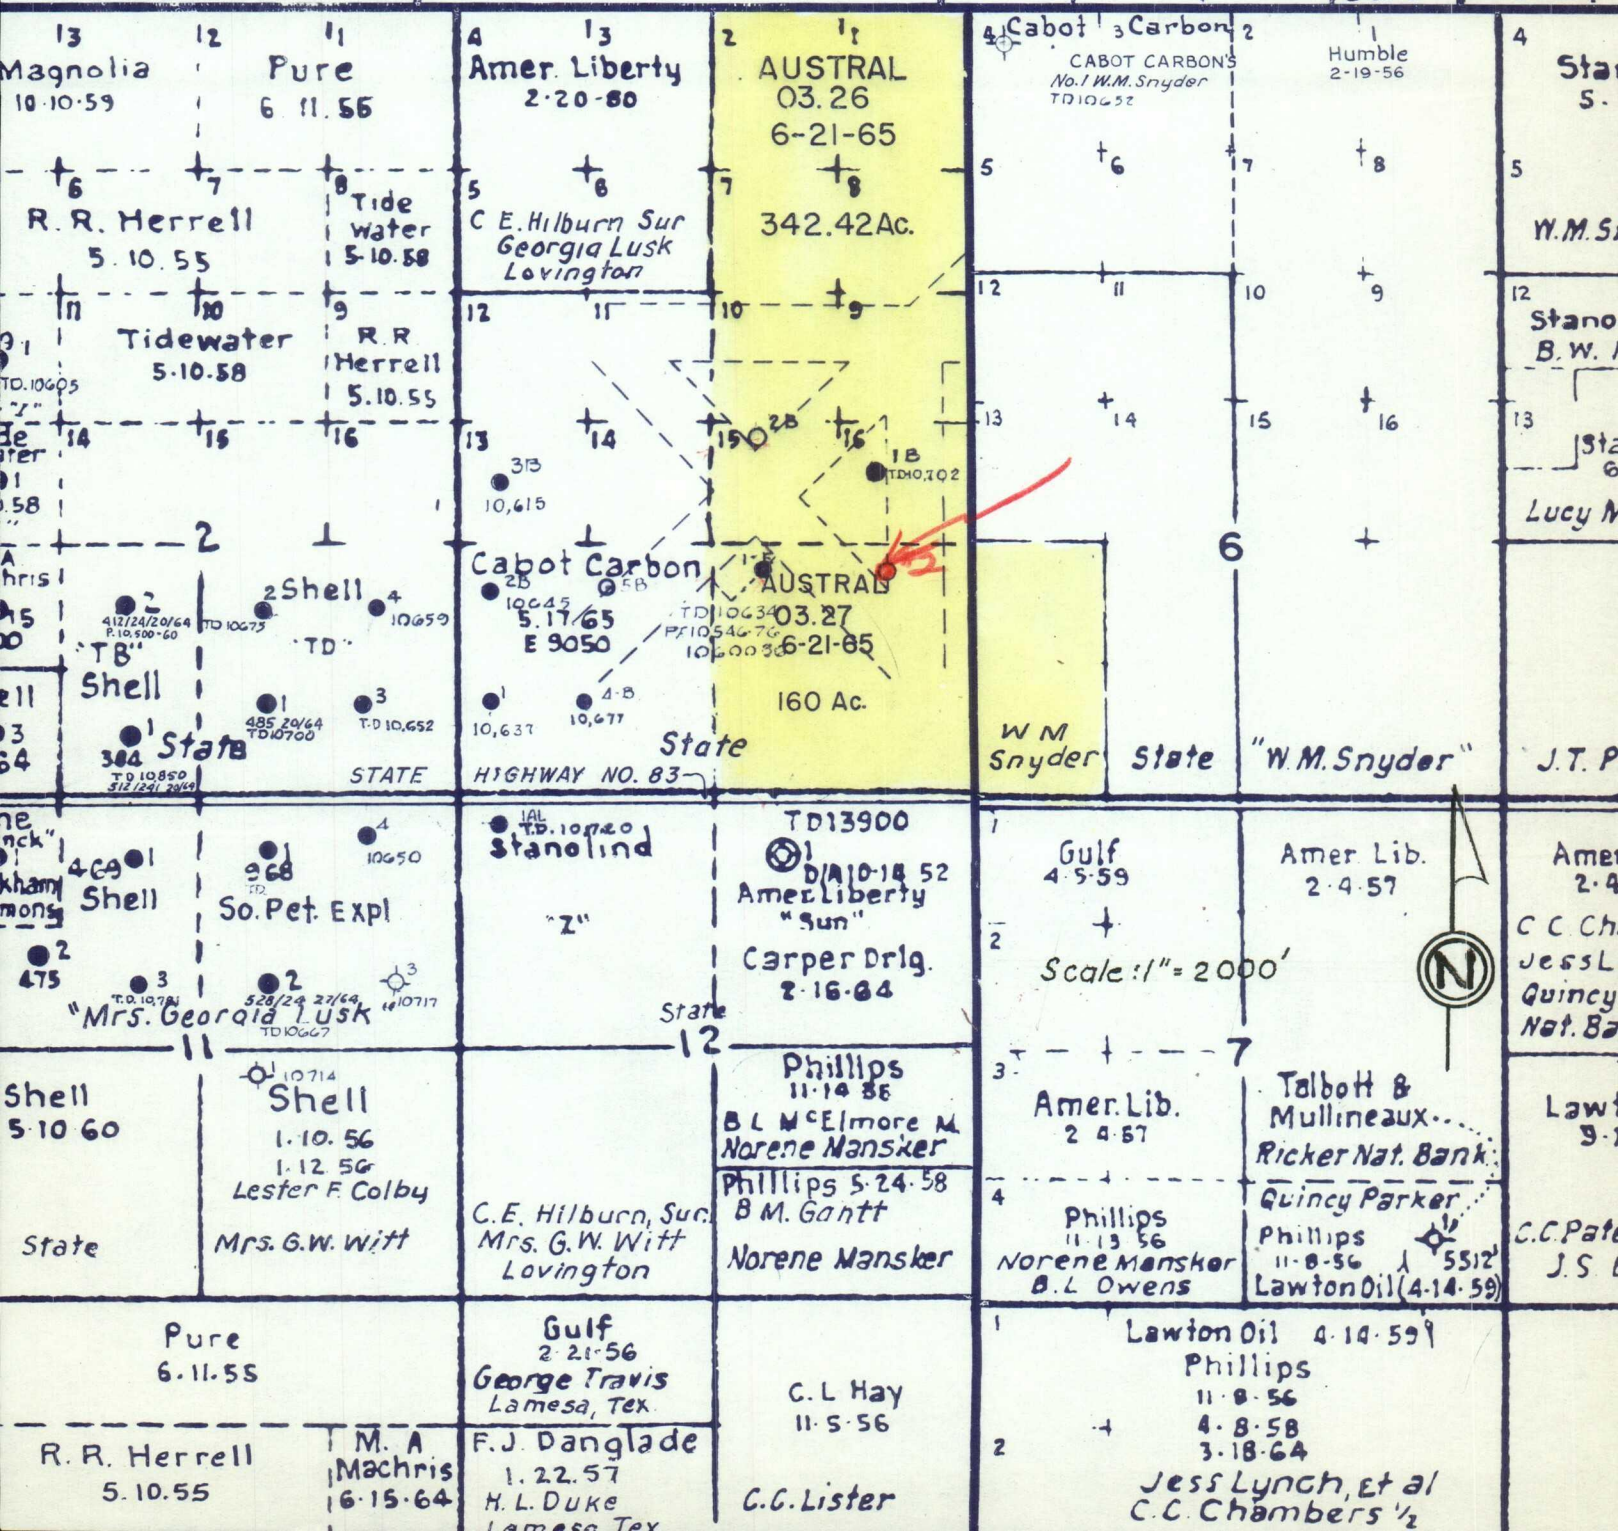 13
12
11
Magnolia
10·10·59
Pure
6 11.56
4
3
Amer. Liberty
2·20-60
2
1
AUSTRAL
03.26
6-21-65
4
Cabot
3
Carbon
2
1
CABOT CARBON'S
No.1 W.M.Snyder
TD10652
Humble
2-19-56
4
5
6
7
8
R. R. Herrell
5.10.55
Tide
Water
5·10.58
5
6
C E. Hilburn Sur
Georgia Lusk
Lovington
7
8
342.42Ac.
5
6
7
8
5
11
10
9
Tidewater
5·10.58
R. R
Herrell
5.10.55
12
11
10
9
12
11
10
9
12
TD.10605
14
15
16
13
14
15
16
2B
3B
10,615
1B
TD10,702
13
14
15
16
13
2
6
2
412/24/20/64
P.10,500-60
"TB"
Shell
1
384
TD 10,850
2
Shell
4
TD 10675
10659
"TD"
1
485 20/64
TD10700
3
T.D 10,652
State
STATE
Cabot Carbon
2B
10645
5B
5.17/65
E 9050
1
10,637
4-B
10,677
State
HIGHWAY NO. 83
AUSTRAL
03.27
6-21-65
TD10634
160 Ac.
#2
W M
Snyder
State
"W.M.Snyder"
J.T. P
469
1
Shell
2
475
3
1
968
TD
4
10650
So. Pet. Expl
2
528/24 27/64
TD10667
3
10717
"Mrs. Georgia Lusk
11
1AL
T.D. 10,720
Stanolind
"Z"
State
12
TD13900
1
D/A 10-14 52
Amer Liberty
"Sun"
Carper Drlg.
2·16·64
1
Gulf
4·5·59
2
Amer Lib.
2·4·57
Scale: 1"= 2000'
N
7
C C Ch
Jess L
Quincy
Shell
5·10 60
State
1
10714
Shell
1·10. 56
1·12 56
Lester F. Colby
Mrs. G.W. Witt
C.E. Hilburn, Sur.
Mrs. G.W. Witt
Lovington
Phillips
B L McElmore M
Norene Mansker
Phillips 5·24·58
B M. Gantt
Norene Mansker
3
Amer. Lib.
2 4·57
4
Phillips
11·13 56
Norene Mansker
B.L Owens
Talbott &
Mullineaux
Ricker Nat. Bank
Quincy Parker
Phillips
11·8·56
5512'
Lawton Oil (4·14·59)
Pure
6.11.55
R. R. Herrell
5.10.55
M. A
Machris
6·15·64
Gulf
2 21·56
George Travis
Lamesa, Tex.
F. J. Danglade
1.22.57
H. L. Duke
Lamesa Tex
C. L Hay
11·5·56
C.C. Lister
1
2
Lawton Oil 4·14·59
Phillips
11·8·56
4·8·58
3·18·64
Jess Lynch, Et al
C.C. Chambers ½